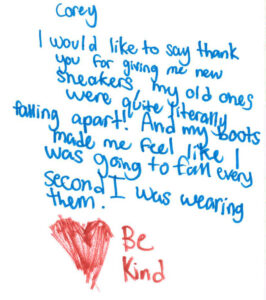 Corey
I would like to say thank
you for giving me new
sneakers, my old ones
were quite literally
falling apart! And my boots
made me feel like I
was going to fall every
second I was wearing
them.
Be
Kind